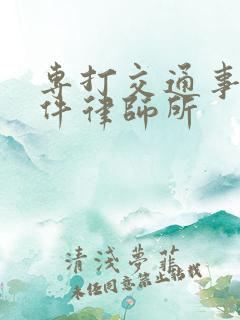 專打交通事
件律師所
清浅夢菲
未经同意禁止转载